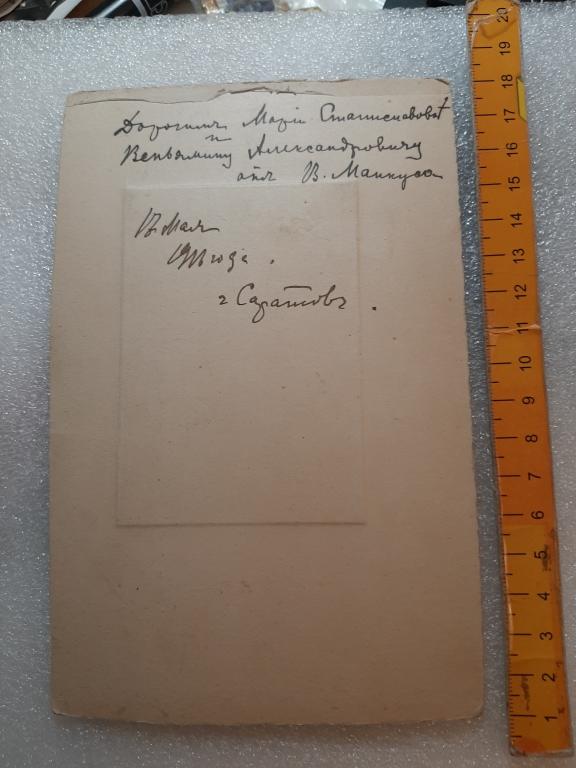 Дорогимъ Маріи Станиславовнѣ
и
Веньямину Александровичу
отъ В. Манкуса
Мая
года.
г Саратовъ.
20
19
18
17
16
15
14
13
12
11
10
9
8
7
6
5
4
3
2
1